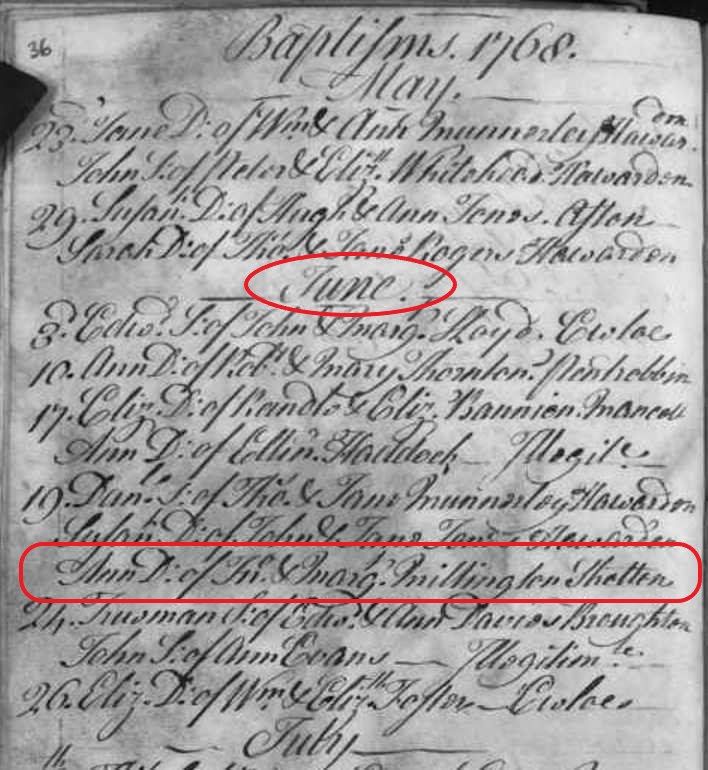 36
Baptisms. 1768.
May.
23. Jane D: of Wm & Ann Munnerley Hawarden
John S: of Peter & Eliz. Whitehead. Hawarden
29. Susan: D: of Hugh & Ann Jones. Afton
Sarah D: of Tho.s & Jane Rogers Hawarden
June.
3.d Edw.d S: of John & Marg.t Lloyd. Ewloe
10. Ann D: of Rob.t & Mary Thornton. Pentrobbin
17. Eliz. D: of Randle & Eliz. Bannion. Mancott
Ann D: of Ellin Haddock — Illegit.e
19. Dan.l S: of Tho.s & Jane Munnerley Hawarden
Susan: D: of John & Jane Hawarden
Ann D: of Jn.o & Marg.t Millington Shotton
24. Truoman S: of Edw.d & Ann Davies Broughton
John S: of Ann Evans — Illegitim.te
26. Eliz. D: of Wm & Eliz.th Foster — Ewloe
July